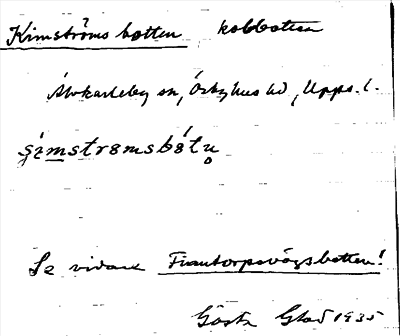 Kimströms botten, kolbotten
Älvkarleby sn, Örbyhus hd, Upps. l.
Se vidare Frantorpsvägsbotten!
Gösta Glad 1935